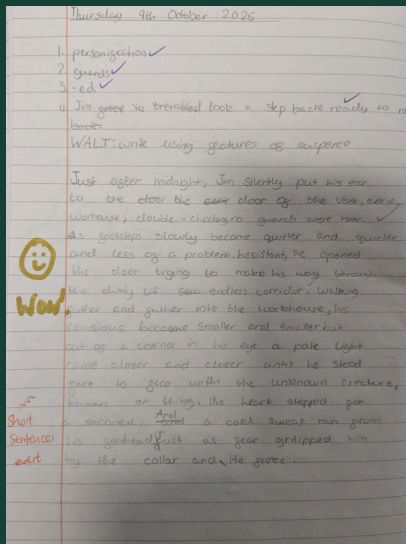 Thursday 9th October 2025
1. personification
2. guards
3. -ed
4. Jim trembled took a step back ready to
WALT: write using features of suspense
Just after midnight, Jim silently put his ear
to the door the door of the vast, eerie,
worhouse, double-checking no guards were near.
As footsteps slowly became quieter and quieter
and less of a problem, hesistant, he opened
the door trying to make his way through
the dimly lit endless corridor. Walking
futher and futher into the workhouse, his
consious became smaller and smaller but
out of a corner in his eye a pale light
came closer and closer until he stood
face to face with the unknown creature,
human or thing. His heart stopped for
a second. And a cold sweat ran from
his forehead just as fear gripped him
by the collar and he froze.
WOW!
Short
Sentences
edit